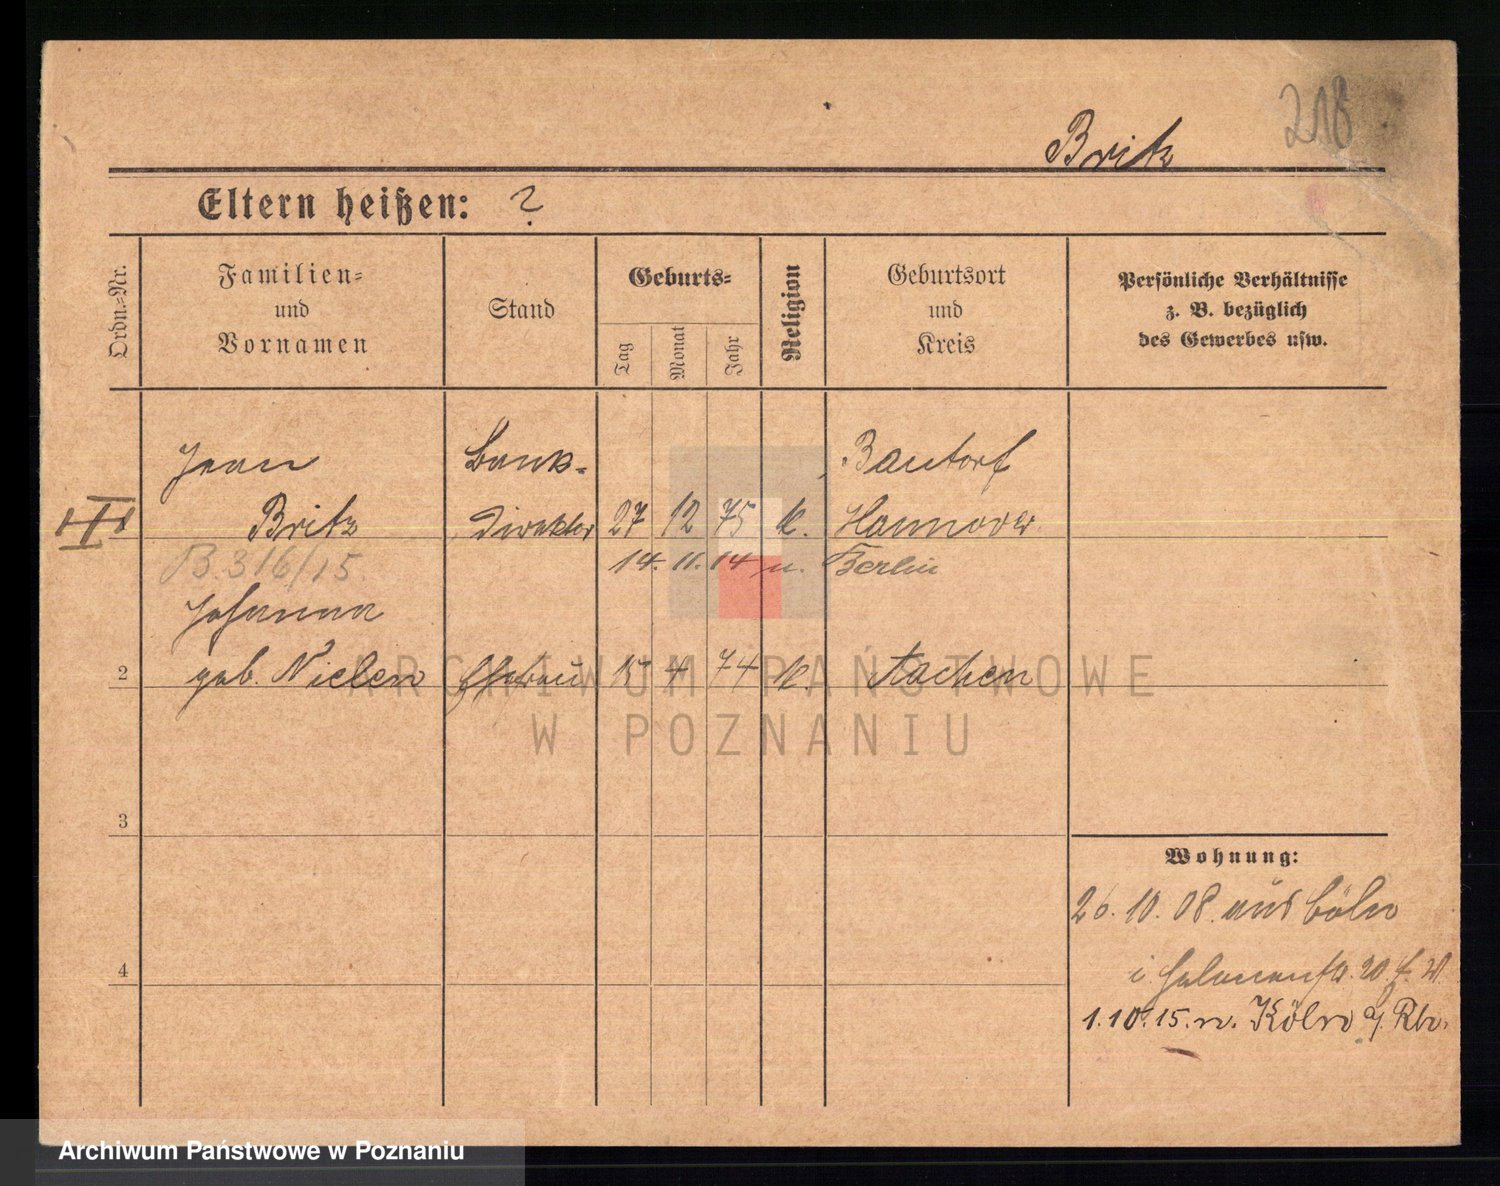 218
Britz
Eltern heißen: ?
Ordn.=Nr.
Familien=
und
Vornamen
Stand
Geburts=
Tag
Monat
Jahr
Religion
Geburtsort
und
Kreis
Persönliche Verhältnisse
z. B. bezüglich
des Gewerbes usw.
Jean Bank-
Britz Direktor 27 12 75 k. Hannover
B.316/15 14. 11. 14 n. Berlin
Johanna
2 geb. Nielen Ehefrau 15 4 74 k. Aachen
3
4
Wohnung:
26. 10. 08. aus Cöln
i. 20.
1. 10. 15. n. Köln a/ Rh.
ARCHIWUM PAŃSTWOWE
W POZNANIU
Archiwum Państwowe w Poznaniu